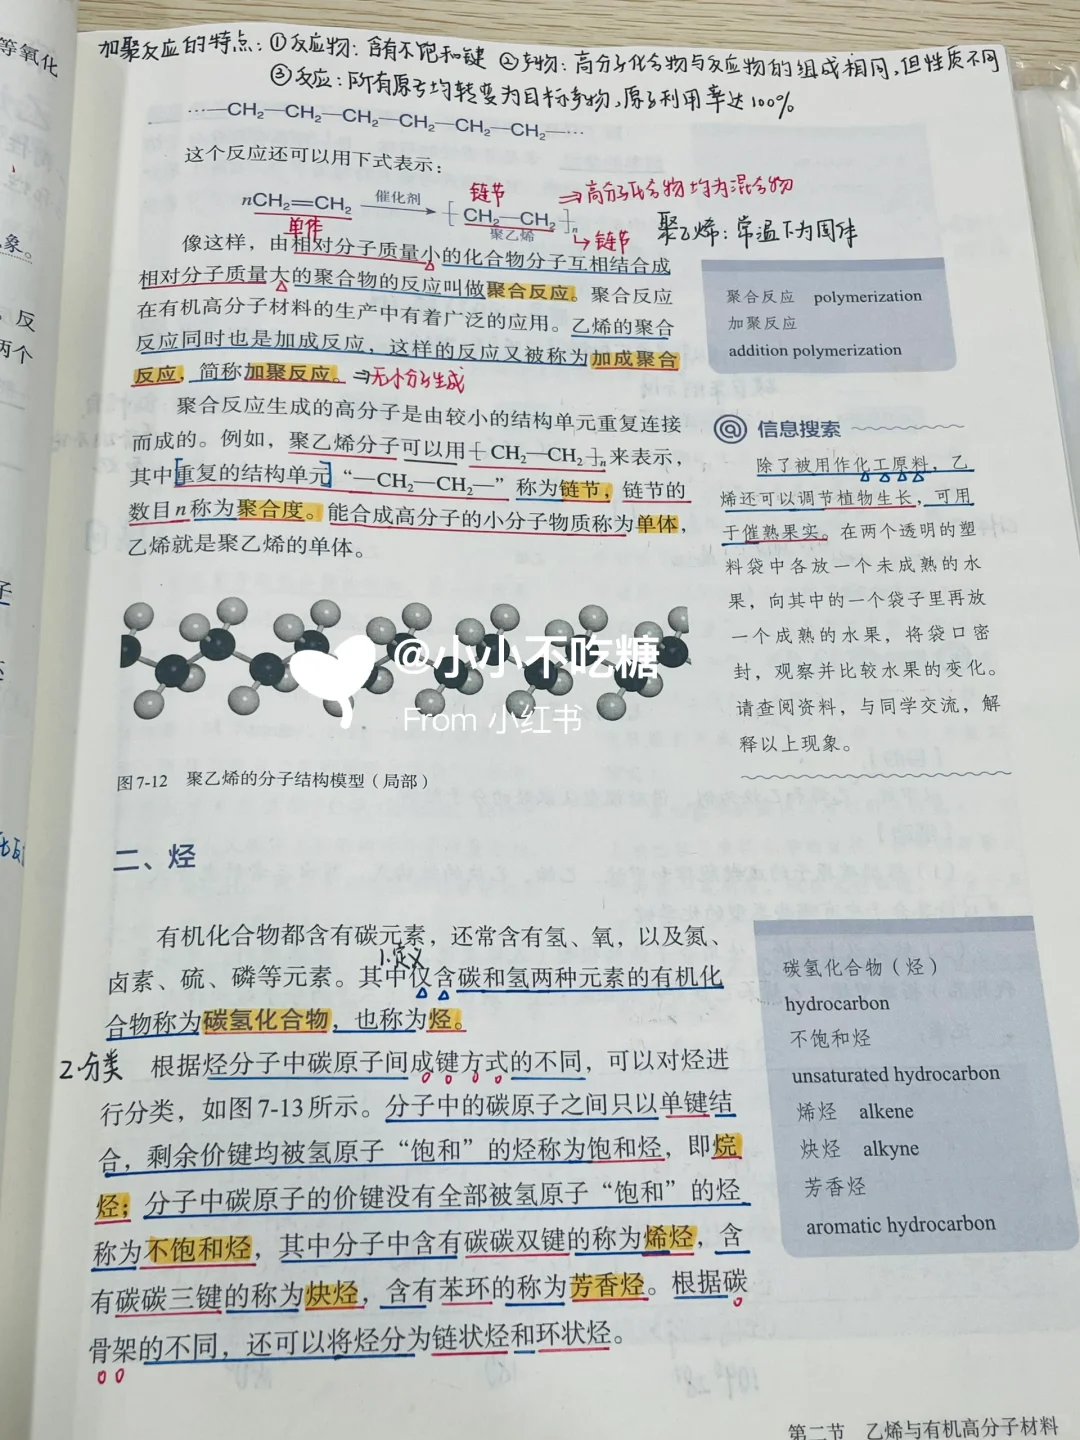 等氧化
加聚反应的特点：①反应物：含有不饱和键 ②产物：高分子化合物与反应物的组成相同，但性质不同
③反应：所有原子均转变为目标产物，原子利用率达100%
···—CH₂—CH₂—CH₂—CH₂—CH₂—CH₂—···
这个反应还可以用下式表示：
链节 ⇒高分子化合物均为混合物
nCH₂=CH₂ 催化剂 → ⁅CH₂—CH₂⁆ₙ
单体 聚乙烯 ↳链节 聚乙烯：常温下为固体
像这样，由相对分子质量小的化合物分子互相结合成
相对分子质量大的聚合物的反应叫做聚合反应。聚合反应
在有机高分子材料的生产中有着广泛的应用。乙烯的聚合
反应同时也是加成反应，这样的反应又被称为加成聚合
反应，简称加聚反应。⇒无小分子生成
聚合反应生成的高分子是由较小的结构单元重复连接
而成的。例如，聚乙烯分子可以用⁅CH₂—CH₂⁆ₙ来表示，
其中[重复的结构单元]“—CH₂—CH₂—”称为链节，链节的
数目n称为聚合度。能合成高分子的小分子物质称为单体，
乙烯就是聚乙烯的单体。
聚合反应 polymerization
加聚反应
addition polymerization
信息搜索
除了被用作化工原料，乙
烯还可以调节植物生长，可用
于催熟果实。在两个透明的塑
料袋中各放一个未成熟的水
果，向其中的一个袋子里再放
一个成熟的水果，将袋口密
封，观察并比较水果的变化。
请查阅资料，与同学交流，解
释以上现象。
@小小不吃糖
From 小红书
图7-12 聚乙烯的分子结构模型（局部）
二、烃
有机化合物都含有碳元素，还常含有氢、氧，以及氮、
1.定义
卤素、硫、磷等元素。其中仅含碳和氢两种元素的有机化
合物称为碳氢化合物，也称为烃。
2.分类 根据烃分子中碳原子间成键方式的不同，可以对烃进
行分类，如图7-13所示。分子中的碳原子之间只以单键结
合，剩余价键均被氢原子“饱和”的烃称为饱和烃，即烷
烃；分子中碳原子的价键没有全部被氢原子“饱和”的烃
称为不饱和烃，其中分子中含有碳碳双键的称为烯烃，含
有碳碳三键的称为炔烃，含有苯环的称为芳香烃。根据碳
骨架的不同，还可以将烃分为链状烃和环状烃。
碳氢化合物（烃）
hydrocarbon
不饱和烃
unsaturated hydrocarbon
烯烃 alkene
炔烃 alkyne
芳香烃
aromatic hydrocarbon
第二节 乙烯与有机高分子材料